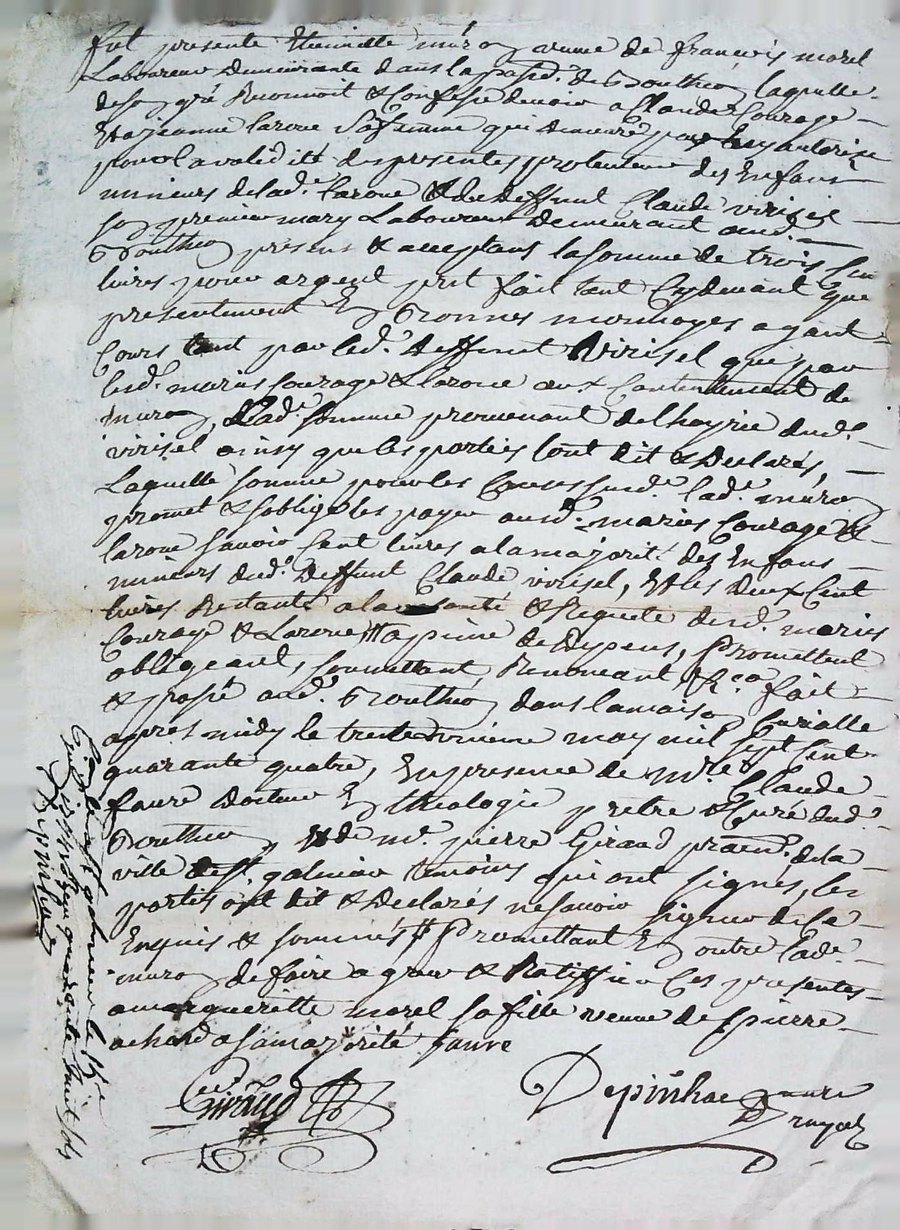 fut presente Etiennette muron veuve de françois morel
Laboureur demeurante dans la parr.e de Bouthéon laquelle
de son gré Reconnoit & Confesse devoir a Claude Courage
Et a jeanne laroue sa femme qui demeure de luy autorisée
pour la validitté des presentes protuteur des Enfans
mineurs de lad.e laroue & de deffunt Claude virisel
son premier mary Laboureur demeurant aud.
Bouthéon present & acceptans la somme de trois Cent
livres pour argent prêt fait tant Cydevant que
presentement En Bonnes monnoyes ayant
Cours tant par led.t deffunt Virisel que par
lesd.s mariés Courage & laroue au Contentement de
muron, Lad.e somme provenant de lhoyrie dud.t
virisel ainsy que les parties l'ont dit & Declarés,
Laquelle somme pour les Causes susd.es lad.e muron
promet & s'oblige les payer ausd.s mariés Courage &
laroue savoir Cent livres a la majorité des Enfans
mineurs dud.t Deffunt Claude virisel, Et les deux Cent
livres Restants a la volonté & Requete desd.s mariés
Courage & Laroue a peine de Depens, Promettent
obligeant, soumettant, Renonceant &c.a fait
& passé aud.t Bouthéon dans la maison Curialle
apres midy le trente may mil sept Cent
quarante quatre, En presence de m.re Claude
faure Docteur En theologie prêtre & Curé dud.t
Bouthéon, & de m.e pierre Giraud praticien de la
ville de St galmier temoins qui ont signés, les
parties ont dit & Declarés ne savoir signer de Ce
Enquis & sommés Promettant En outre lad.e
muron de faire agréer & Ratiffier Ces presentes
a margueritte morel sa fille veuve de pierre
achard a sa majorité. faure
Giraud
Depinhac
Controllé a St galmier le 15.e
quarante huit sols
Depinhac